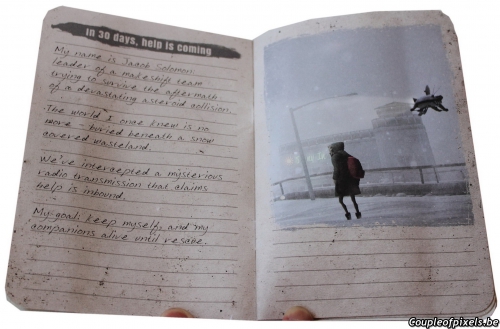 in 30 days, help is coming
My name is Jacob Solomon
leader of a makeshift team
trying to survive the aftermath
of a devastating asteroid collision.
The world I once knew is no
more - buried beneath a snow
covered wasteland.
We've intercepted a mysterious
radio transmission that claims
help is inbound.
My goal: keep myself, and my
companions alive until rescue.
Coupleofpixels.be